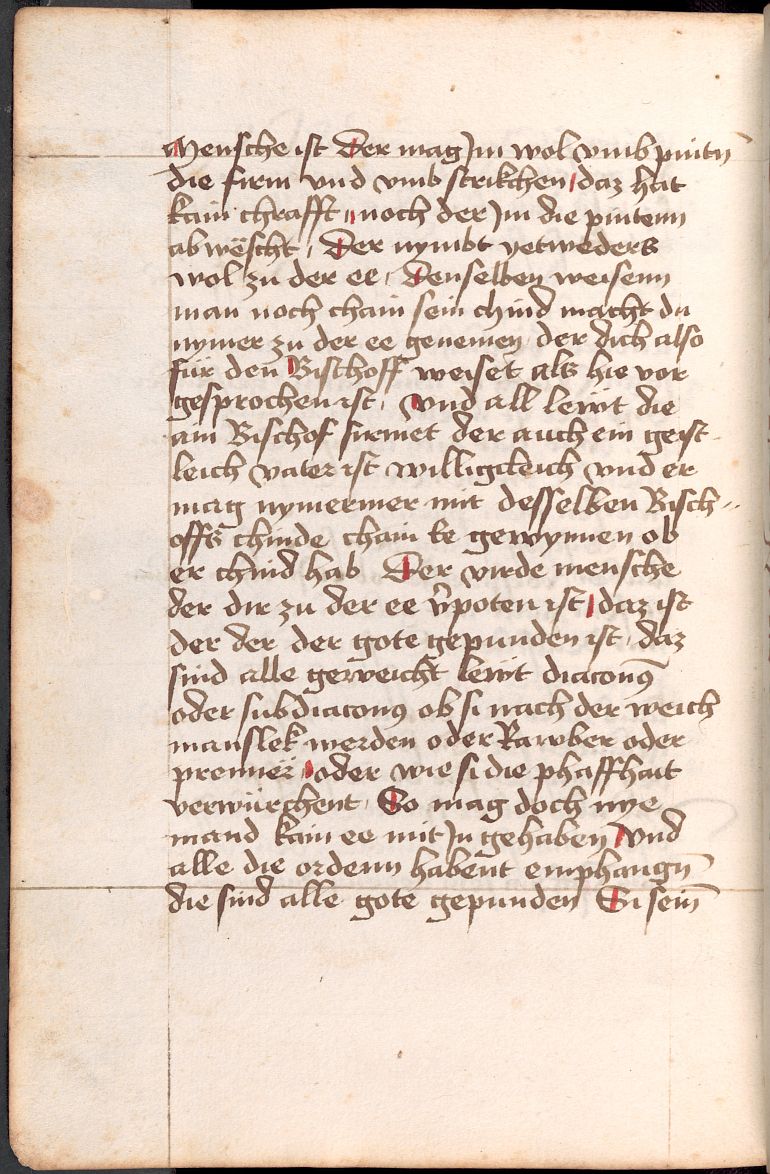 Mensche ist Der mag Jm wol vmb pintn̄
die firm vnd vmb strikchen daz hat
kain chrafft noch der Jm die pintenn
ab wëscht, Der nymbt yetweders
wol zu der ee, Denselben weisenn
man noch chain sein chind macht du
nymer zu der ee genemen der dich also
für den Bischoff weiset als hie vor
gesprochen ist, Vnd all lewt die
ain Bischof firmet der auch ein geist-
leich vater ist willigcleich vnd er
mag nymermer mit desselben Bisch-
offs chinde chain ke gewynnen ob
er chind hab Der virde mensche
der dir zu der ee v̄poten ist, daz ist
der der der gote gepunden ist, daz
sind alle geweicht lewt diaconꝰ
oder subdiaconꝰ ob si nach der weich
manslek werden oder Rawber oder
prenner, oder wie si die phaffhait
verwürchent, So mag doch nye
mand kain ee mit Jn gehaben, Vnd
alle die ordenn habent emphangn̄
die sind alle gote gepunden Si sein̄